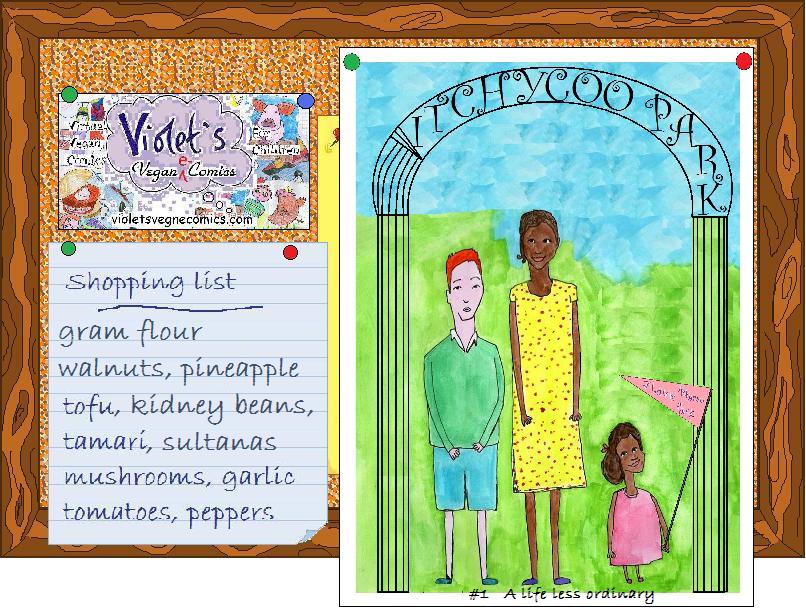 Virtual
Vegan
Comics
Violet's
Vegan e Comics
For
Children
violetsvegnecomics.com
Shopping list
gram flour
walnuts, pineapple
tofu, kidney beans,
tamari, sultanas
mushrooms, garlic
tomatoes, peppers
ITCHYCOO PARK
#1 A life less ordinary